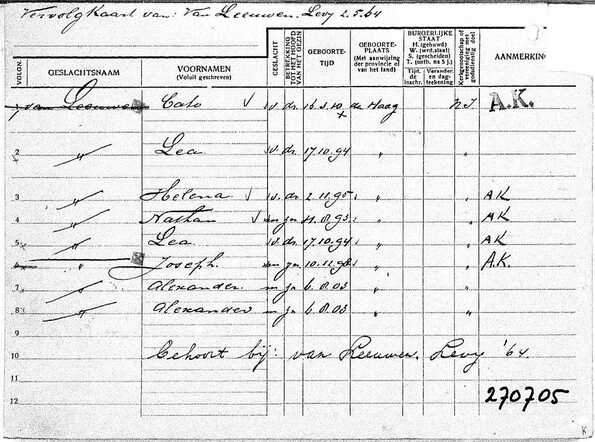 Vervolgkaart van: Van Leeuwen. Levy 2.5.64
VOLGN. GESLACHTSNAAM VOORNAMEN (Voluit geschreven) GESLACHT BETREKKING TOT HET HOOFD VAN HET GEZIN GEBOORTE-TIJD GEBOORTE-PLAATS (Met aanwijzing der provincie of van het land) BURGERLIJKE STAAT H. (gehuwd) W. (wett.staat) S. (gescheiden) T. (achter naam) Tijd. de inschr. Verander. en dag-teekening Kerkgenootschap AANMERKIN
van Leeuwen Cato v. dr. de Haag N.I. A.K.
2 " Lea v. dr. 17.10.94 "
3 " Helena v. dr. 2.11.95 " " AK
4 " Nathan m zn 4.8.93 " " AK
5 " Lea v. dr. 17.10.94 " " AK
6 " Joseph. m zn " " A.K.
7 " Alexander m zn 6.8.03 " "
8 " Alexander m zn 6.8.03 " "
9
10 Gehoort bij: van Leeuwen. Levy '64
11
12 270705
K